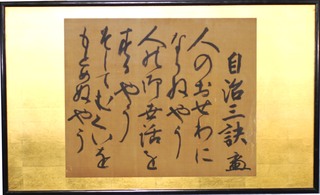 自治三訣
人のおせわに
ならぬやう
人の御世話を
するやう
そしてむくいを
もとめぬやう